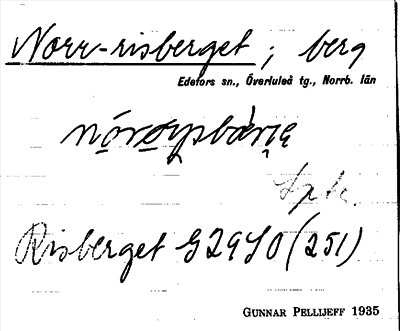 Norr-risberget; berg
Edefors sn., Överluleå tg., Norrb. län
Risberget G29SO (251)
GUNNAR PELLIJEFF 1935